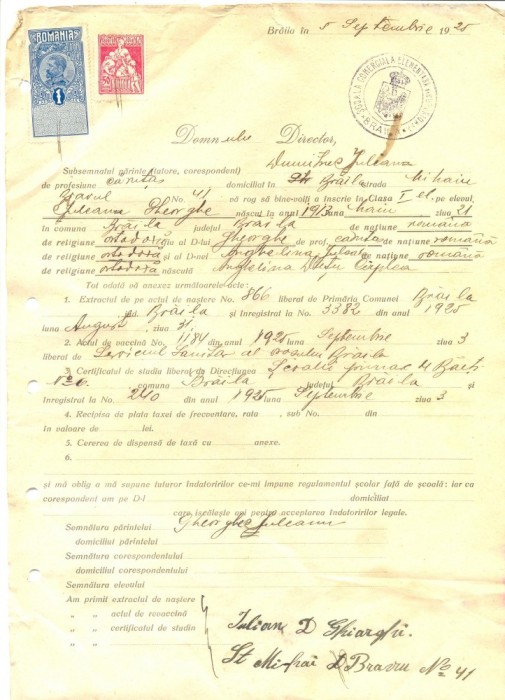 Brăila în 5 Septembrie 1925
ROMANIA
1
ȘCOALA COMERCIALĂ ELEMENTARĂ
BRĂILA
Domnule Director,
Subsemnatul părinte (tutore, corespondent) Dumitru Juleanu
de profesiune domiciliat în Str Brăila strada Mihaiu
Bravul No. 41 vă rog să bine-voiți a înscrie în Clasa I el. pe elevul
Juleanu Gheorghe născut în anul 1913 luna ziua 21
în comuna Brăila județul Braila de națiune romana
de religiune ortodoxă al D-lui Gheorghe de prof. de națiune română
de religiune ortodoxă și al D-nei de națiune română
de religiune ortodoxă născută Anghelina
Tot odată să anexez următoarele acte:
1. Extractul de pe actul de naștere No. 866 liberat de Primăria Comunei Brăila
jud. Brăila și înregistrat la No. 3382 din anul 1925
luna August ziua 31.
2. Actul de vaccină No. 1184 din anul 1925 luna Septembrie ziua 3
liberat de Serviciul Sanitar al orașului Brăila
3. Certificatul de studiu liberat de Direcțiunea Școalei primare
No 6. comuna Brăila județul Brăila și
înregistrat la No. 240 din anul 1925 luna Septembrie ziua 3
4. Recipisa de plata taxei de frecventare, rata , sub No. din
în valoare de lei.
5. Cererea de dispensă de taxă cu anexe.
6.
și mă oblig a mă supune tuturor îndatoririlor ce-mi impune regulamentul școlar față de școală: iar ca
corespondent am pe D-l domiciliat
care iscălește aci pentru acceptarea îndatoririlor legale.
Semnătura părintelui Gheorghe Juleanu
domiciliul părintelui
Semnătura corespondentului
domiciliul corespondentului
Semnătura elevului
Am primit extractul de naștere
„ „ actul de revaccină
„ „ certificatul de studiu
Iulian D Ghiorghi.
St Mihai D Bravu No 41